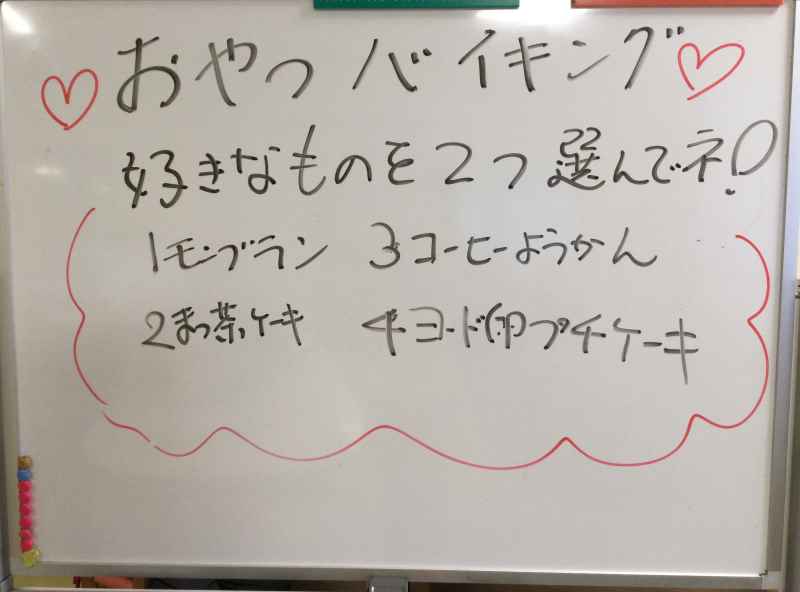 おやつバイキング
好きなものを2つ選んでネ!
1モンブラン 3コーヒーようかん
2まっ茶ケーキ 4ヨード卵プチケーキ